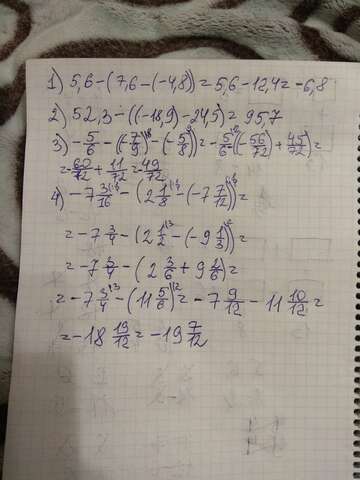 1) 5,6-(7,6-(-4,8))=5,6-12,4=-6,8
2) 52,3-((-18,9)-24,5)=95,7
3) -5/6-((-7/9)\8-(-5/8)\9)=-5/6\12-((-56/72)+45/72)=
=60/72+11/72=49/72
4) -7 3/16-(2 1/8-(-7 7/12))=
=-7 3/4-(2 1/2\3-(-9 1/3)\2)=
=-7 3/4-(2 3/6+9 2/6)=
=-7 3/4\3-(11 5/6)\2=-7 9/12-11 10/12=
=-18 19/12=-19 7/12